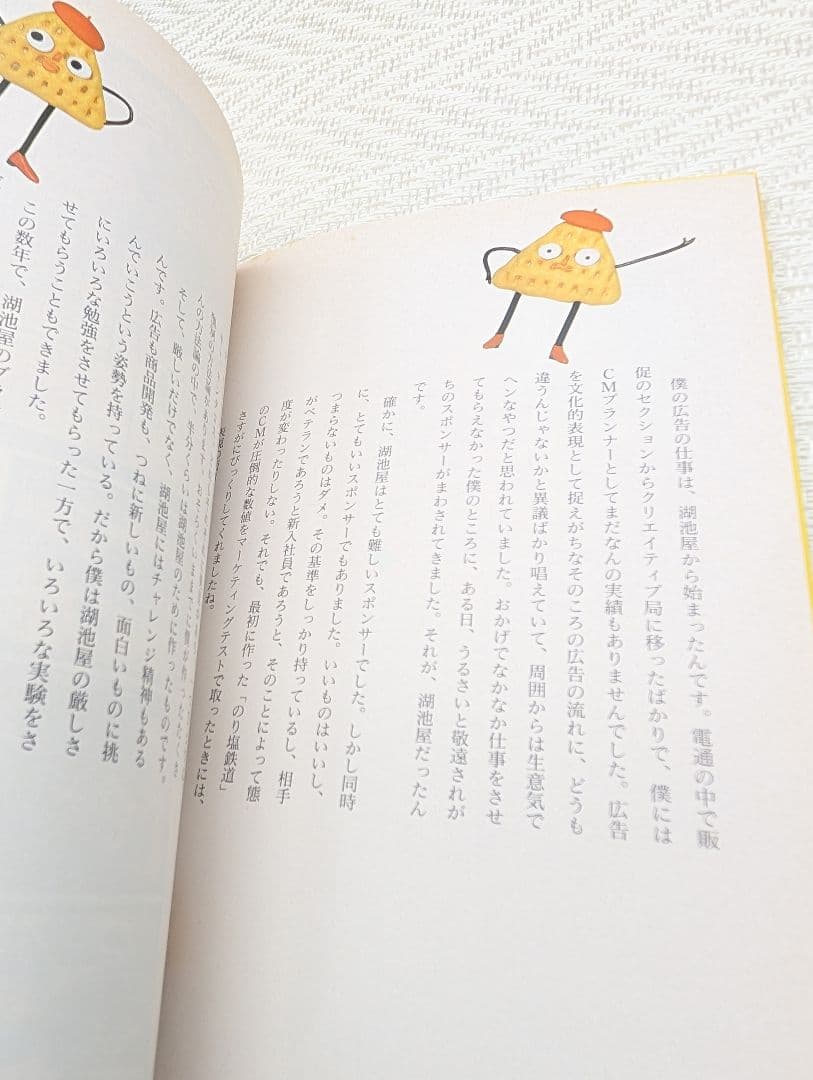 僕の広告の仕事は、湖池屋から始まったんです。電通の中で販
促のセクションからクリエイティブ局に移ったばかりで、僕には
CMプランナーとしてまだなんの実績もありませんでした。広告
を文化的表現として捉えがちなそのころの広告の流れに、どうも
違うんじゃないかと異議ばかり唱えていて、周囲からは生意気で
ヘンなやつだと思われていました。おかげでなかなか仕事をさせ
てもらえなかった僕のところに、ある日、うるさいと敬遠されが
ちのスポンサーがまわされてきました。それが、湖池屋だったん
です。
確かに、湖池屋はとても難しいスポンサーでした。しかし同時
に、とてもいいスポンサーでもありました。いいものはいいし、
つまらないものはダメ。その基準をしっかり持っているし、相手
がベテランであろうと新入社員であろうと、そのことによって態
度が変わったりしない。それでも、最初に作った「のり塩鉄道」
のCMが圧倒的な数値をマーケティングテストで取ったときには、
さすがにびっくりしてくれましたね。
んの方法論の中で、半分くらいは湖池屋のために作ったものです。
そして、厳しいだけでなく、湖池屋にはチャレンジ精神もある
んです。広告も商品開発も、つねに新しいもの、面白いものに挑
んでいこうという姿勢を持っている。だから僕は湖池屋の厳しさ
にいろいろな勉強をさせてもらった一方で、いろいろな実験をさ
せてもらうこともできました。
この数年で、湖池屋の